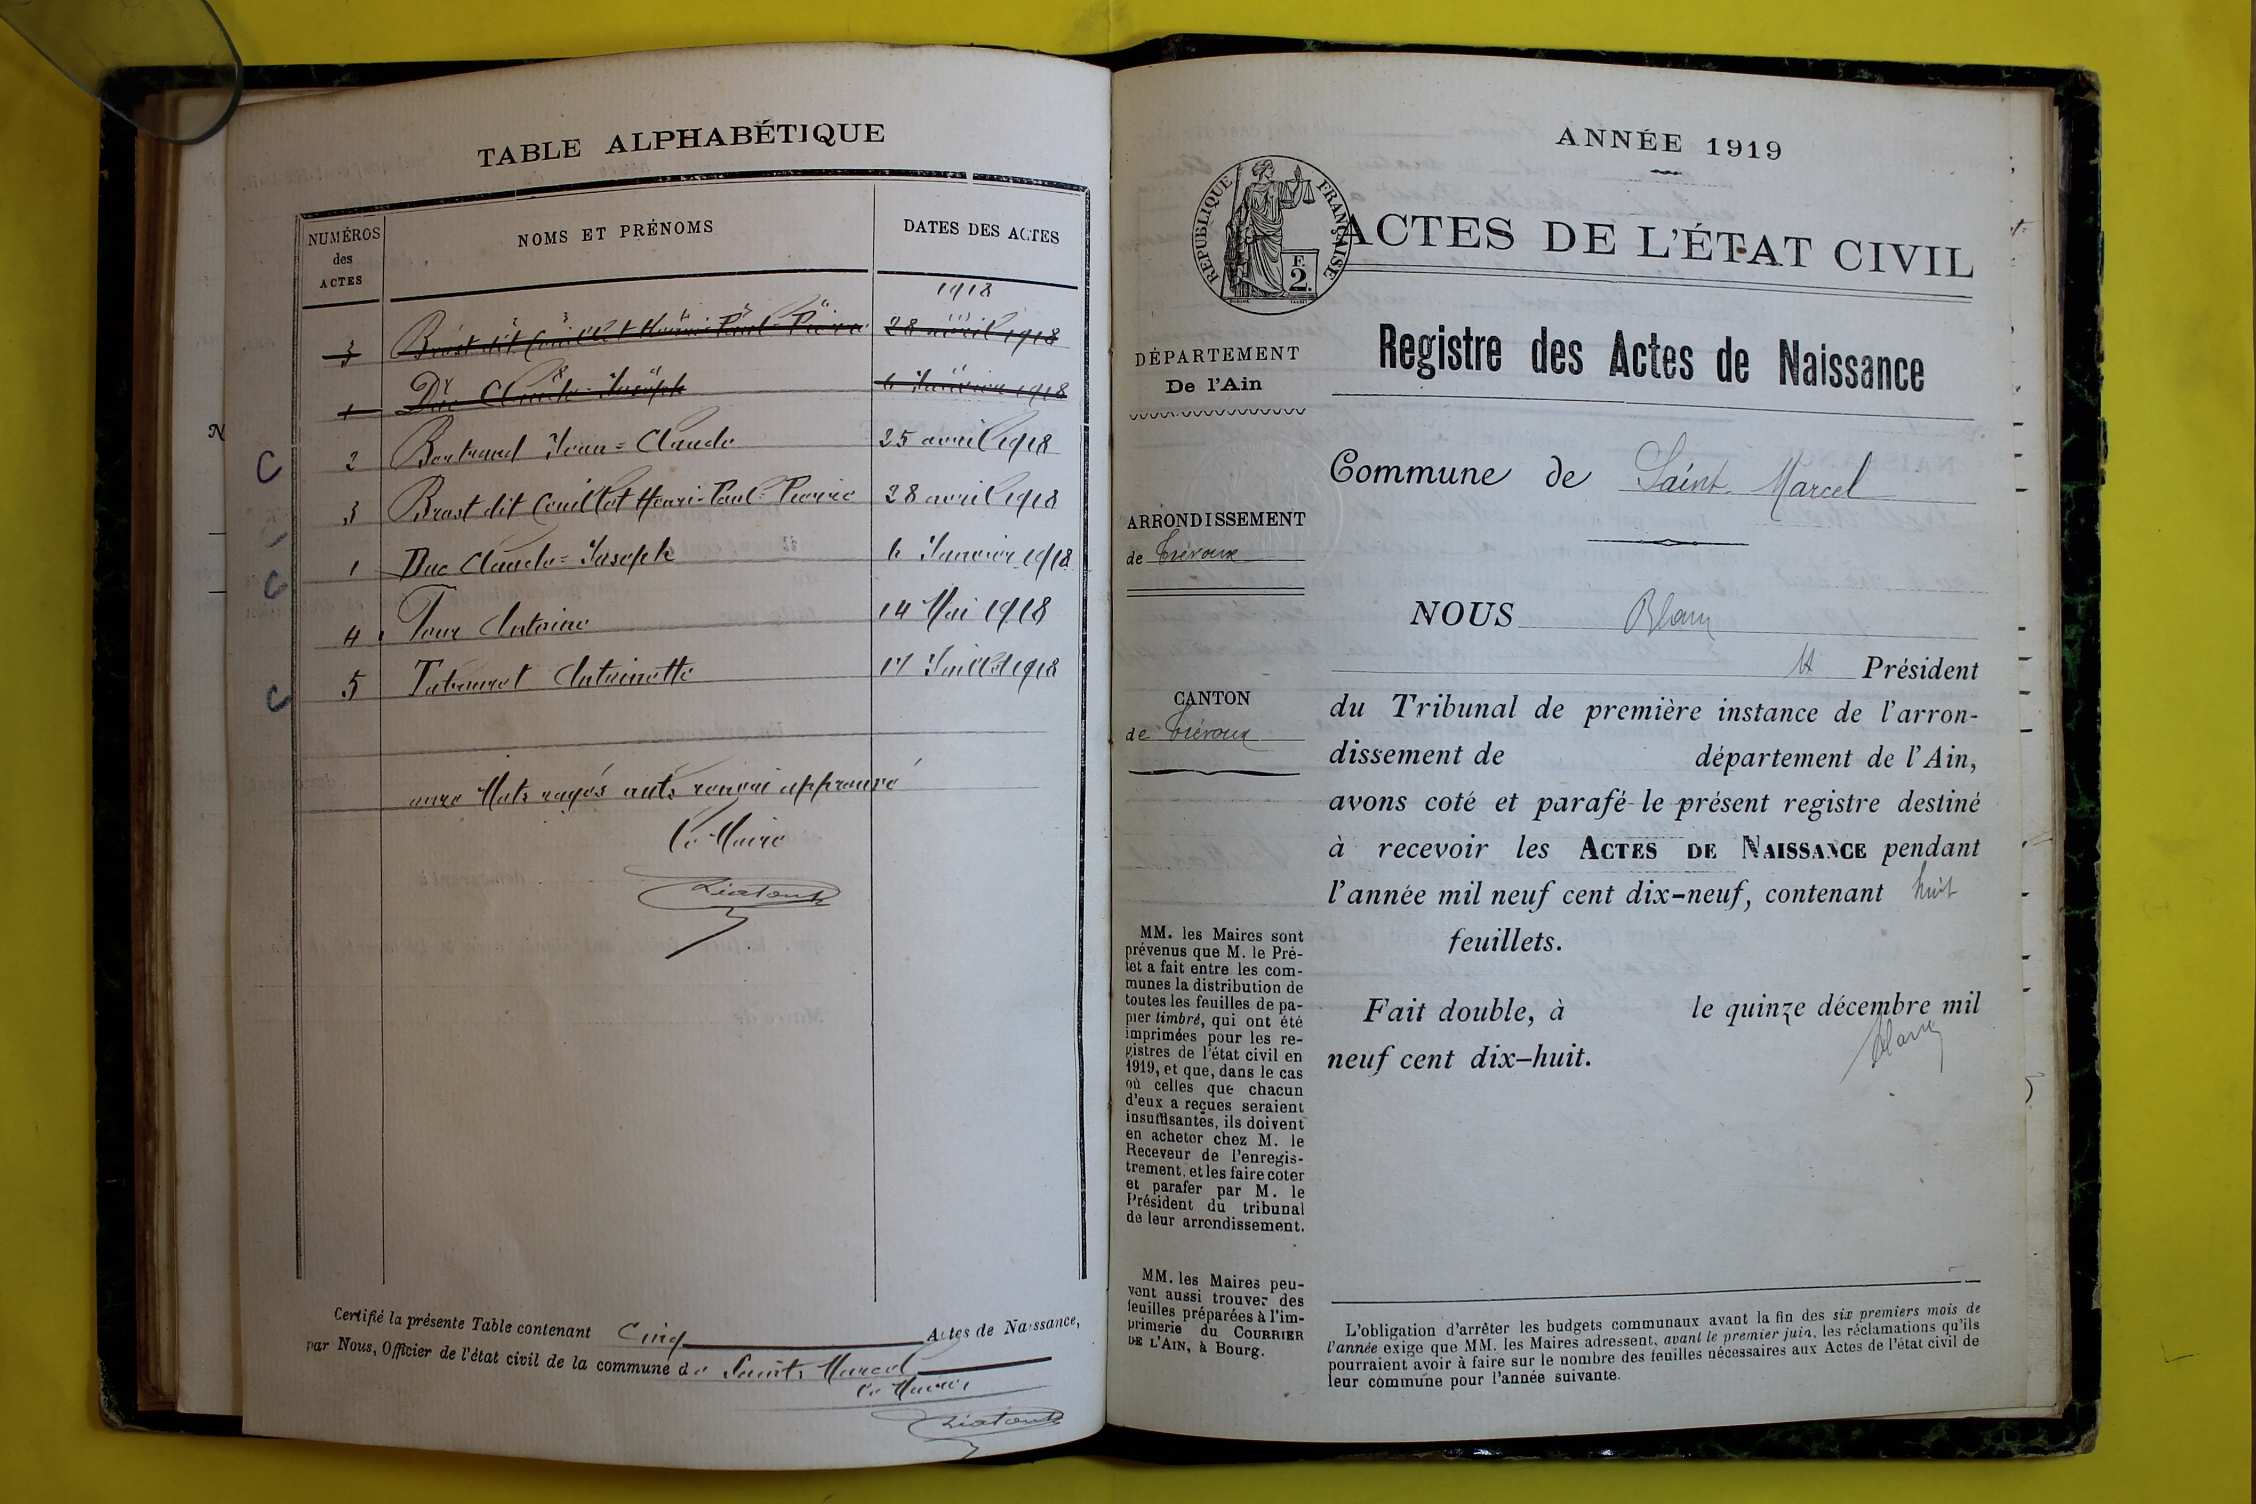 TABLE ALPHABÉTIQUE
NUMÉROS des ACTES
NOMS ET PRÉNOMS
DATES DES ACTES
1918
3 Brost dit Couillot Henri-Paul-Pierre 28 avril 1918
1 Duc Claude-Joseph 6 Janvier 1918
2 Bertrand Jean=Claude 25 avril 1918
3 Brost dit Couillot Henri-Paul=Pierre 28 avril 1918
1 Duc Claude=Joseph 6 Janvier 1918
4 Antoine 14 Mai 1918
5 Antoinette 17 Juillet 1918
onze Mots rayés nuls renvoi approuvé
Le Maire
Certifié la présente Table contenant Cinq Actes de Naissance,
par Nous, Officier de l'état civil de la commune de Saint-Marcel
Le Maire
ANNÉE 1919
RÉPUBLIQUE FRANÇAISE
F.
2.
ACTES DE L'ÉTAT CIVIL
Registre des Actes de Naissance
DÉPARTEMENT
De l'Ain
Commune de Saint-Marcel
ARRONDISSEMENT
de Trévoux
NOUS Blanc
Président
CANTON
de Trévoux
du Tribunal de première instance de l'arron-
dissement de département de l'Ain,
avons coté et parafé le présent registre destiné
à recevoir les ACTES DE NAISSANCE pendant
l'année mil neuf cent dix-neuf, contenant huit
feuillets.
Fait double, à le quinze décembre mil
neuf cent dix-huit.
Blanc
MM. les Maires sont
prévenus que M. le Pré-
fet a fait entre les com-
munes la distribution de
toutes les feuilles de pa-
pier timbré, qui ont été
imprimées pour les re-
gistres de l'état civil en
1919, et que, dans le cas
où celles que chacun
d'eux a reçues seraient
insuffisantes, ils doivent
en acheter chez M. le
Receveur de l'enregis-
trement, et les faire coter
et parafer par M. le
Président du tribunal
de leur arrondissement.
MM. les Maires peu-
vent aussi trouver des
feuilles préparées à l'im-
primerie du COURRIER
DE L'AIN, à Bourg.
L'obligation d'arrêter les budgets communaux avant la fin des six premiers mois de
l'année exige que MM. les Maires adressent, avant le premier juin, les réclamations qu'ils
pourraient avoir à faire sur le nombre des feuilles nécessaires aux Actes de l'état civil de
leur commune pour l'année suivante.